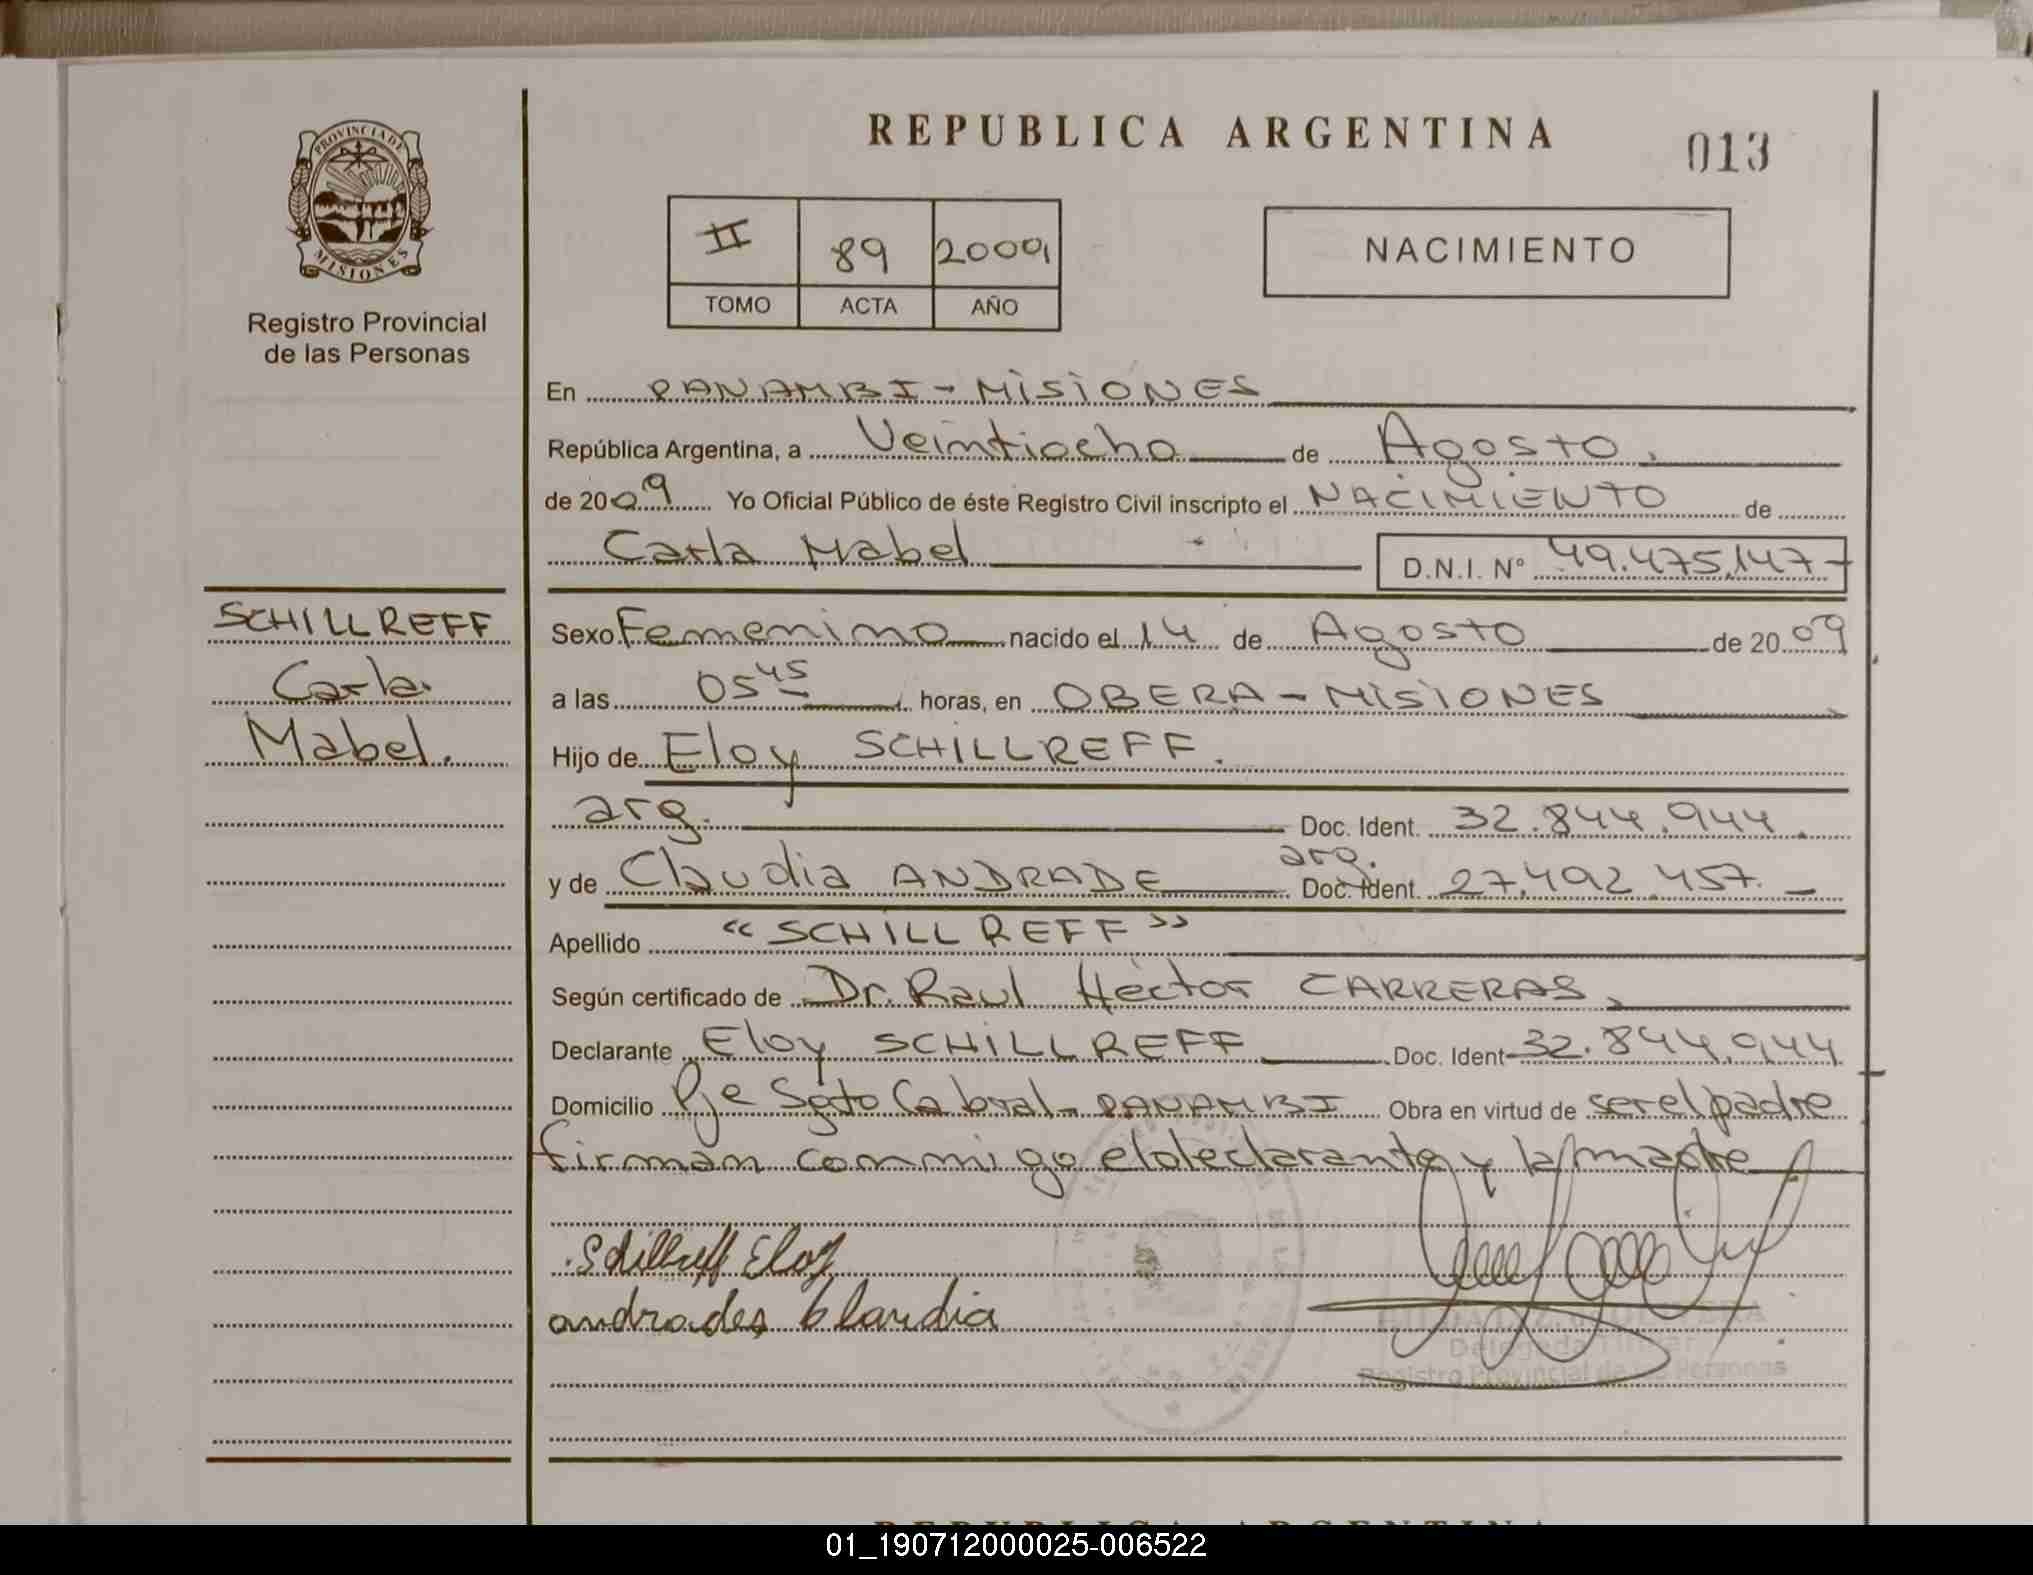 PROVINCIA DE
MISIONES
Registro Provincial
de las Personas
REPUBLICA ARGENTINA
013
II 89 2009
TOMO ACTA AÑO
NACIMIENTO
En PANAMBI - MISIONES
República Argentina, a Veintiocho de Agosto.
de 2009 Yo Oficial Público de éste Registro Civil inscripto el NACIMIENTO de
Carla Mabel D.N.I. Nº 49.475.147-
SCHILLREFF
Carla
Mabel.
Sexo Femenino nacido el 14 de Agosto de 2009
a las 05 45 horas, en OBERA - MISIONES
Hijo de Eloy SCHILLREFF.
arg. Doc. Ident. 32.844.944.
y de Claudia ANDRADE arg. Doc. Ident. 27.492.457.-
Apellido "SCHILLREFF"
Según certificado de Dr. Raul Héctor CARRERAS,
Declarante Eloy SCHILLREFF Doc. Ident 32.844.944
Domicilio Pje Sgto Cabral - PANAMBI Obra en virtud de ser el padre
firman conmigo el declarante y la madre
Schillreff Eloy
andrades Claudia
Delegada Titular
Registro Provincial de las Personas
REPUBLICA ARGENTINA
01_190712000025-006522